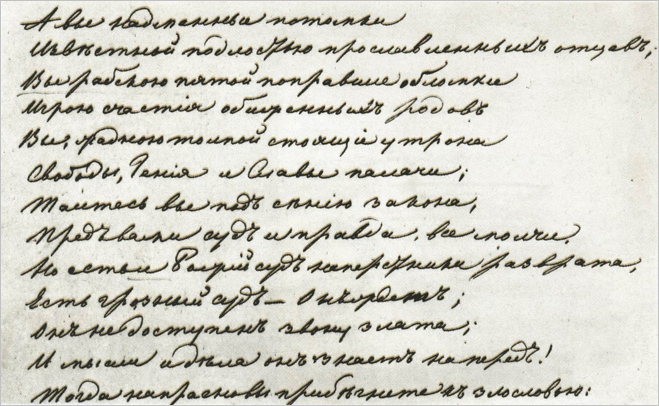 А вы надменные потомки
Извѣстной подлостью прославленныхъ отцевъ,
Вы рабскою пятой поправшіе обломки
Игрою счастія обиженныхъ родовъ
Вы, жадною толпой стоящіе у трона
Свободы, Генія и Славы палачи;
Таитесь вы подъ сѣнію закона,
Предъ вами судъ и правда, все молчи.
Но есть и Божій судъ наперсники разврата,
Есть грозный судъ — Онъ ждетъ;
Онъ не доступенъ звону злата;
И мысли и дѣла онъ знаетъ напередъ!
Тогда напрасно вы прибѣгнете къ злословью: